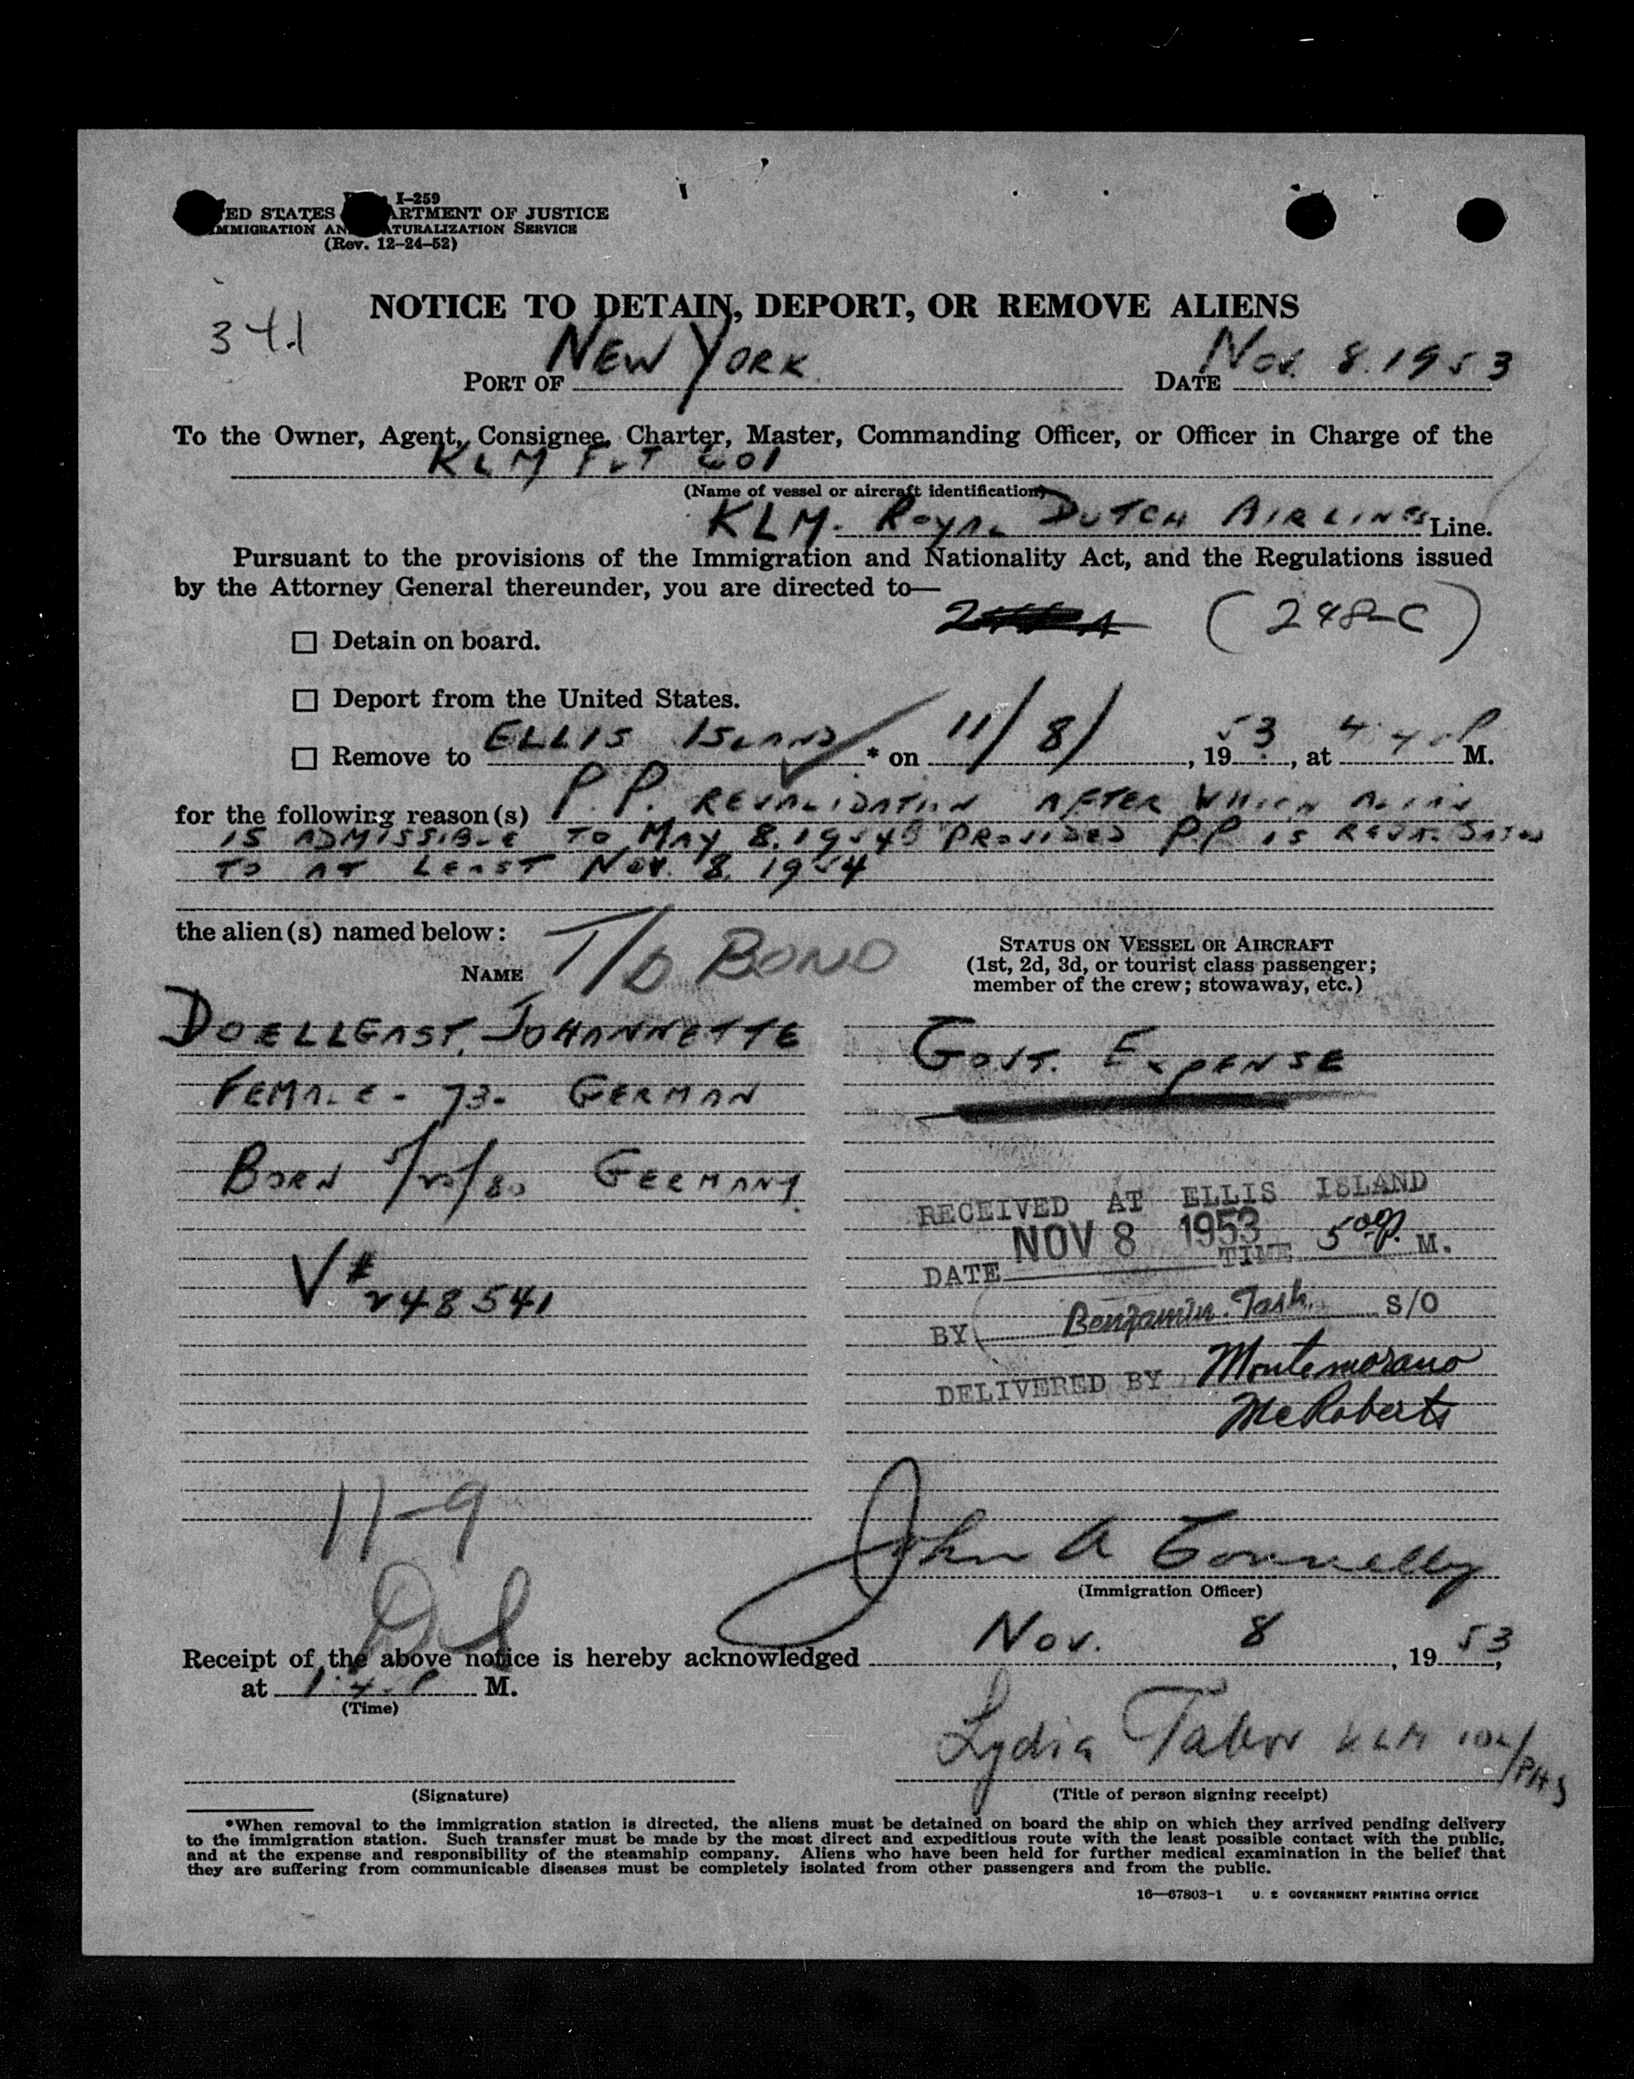 I-259
ED STATES ARTMENT OF JUSTICE
MMIGRATION AN TURALIZATION SERVICE
(Rev. 12-24-52)
341
NOTICE TO DETAIN, DEPORT, OR REMOVE ALIENS
PORT OF NEW YORK DATE NOV. 8. 1953
To the Owner, Agent, Consignee, Charter, Master, Commanding Officer, or Officer in Charge of the
KLM FLT 601
(Name of vessel or aircraft identification)
KLM. ROYAL DUTCH AIRLINES Line.
Pursuant to the provisions of the Immigration and Nationality Act, and the Regulations issued
by the Attorney General thereunder, you are directed to—
(248-C)
☐ Detain on board.
☐ Deport from the United States.
☐ Remove to ELLIS ISLAND * on 11/8/, 1953, at 4:40 P M.
for the following reason(s) P.P. REVALIDATION AFTER WHICH ALIEN
IS ADMISSIBLE TO MAY 8. 1954 PROVIDED PP IS REVALIDATED
TO AT LEAST NOV. 8. 1954
the alien(s) named below:
T/D BOND
NAME
STATUS ON VESSEL OR AIRCRAFT
(1st, 2d, 3d, or tourist class passenger;
member of the crew; stowaway, etc.)
DOELLGAST, JOHANNETTE
GOVT. EXPENSE
FEMALE - 73 - GERMAN
BORN 5/20/80 GERMANY.
V# 248541
RECEIVED AT ELLIS ISLAND
DATE NOV 8 1953 TIME 5 00 P. M.
BY Benjamin Tash S/O
DELIVERED BY Montemorano
McRoberts
11-9
DS
John A Connelly
(Immigration Officer)
Receipt of the above notice is hereby acknowledged Nov. 8, 1953,
at M.
(Time)
Lydia Tabor KLM
(Signature)
(Title of person signing receipt)
*When removal to the immigration station is directed, the aliens must be detained on board the ship on which they arrived pending delivery
to the immigration station. Such transfer must be made by the most direct and expeditious route with the least possible contact with the public,
and at the expense and responsibility of the steamship company. Aliens who have been held for further medical examination in the belief that
they are suffering from communicable diseases must be completely isolated from other passengers and from the public.
16—67803-1 U. S. GOVERNMENT PRINTING OFFICE